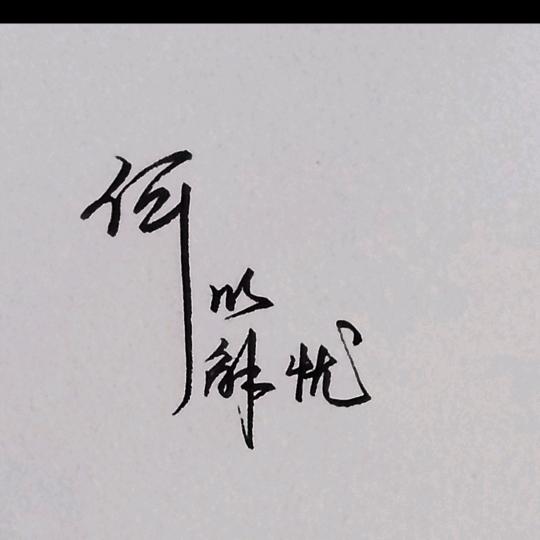 何
以
解忧